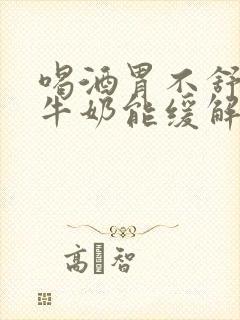 喝酒胃不舒
牛奶能缓解
高 智